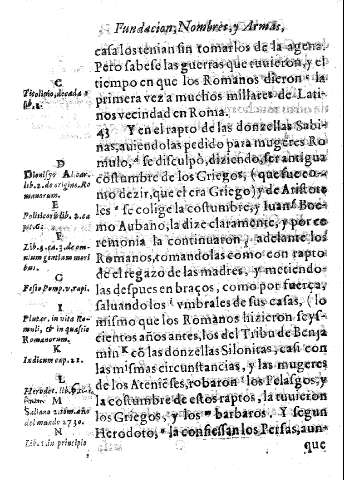 Fundacion, Nombres, y Armas,
casa los tenian sin tomarlos de la agena.
Pero sabese las guerras que tuuieron, y el
tiempo en que los Romanos dieron la
primera vez a muchos millares de Lati-
nos vecindad en Roma.
43 Y en el rapto de las donzellas Sabi-
nas, auiendolas pedido para mugeres Ro
mulo, se disculpò, diziendo, ser antigua
costumbre de los Griegos, (que fue co-
mo dezir, que el era Griego) y de Aristote
les se colige la costumbre, y Iuan Boe-
mo Aubano, la dize claramente, y por ce
remonia la continuaron adelante los
Romanos, tomandolas como con rapto
de el regazo de las madres, y metiendo-
las despues en braços, como por fuerça,
saluando los vmbrales de sus casas, (lo
mismo que los Romanos hizieron seys-
cientos años antes, los del Tribu de Benja
min cõ las donzellas Silonitas, casi con
las mismas circunstancias, y las mugeres
de los Ateniẽses, robaron los Pelasgos, y
la costumbre de estos raptos, la tuuieron
los Griegos, y los barbaros. Y segun
Herodoto, la confiessan los Persas, aun-
que
C
Tito liuio, decada 1
lib. 1.
D
Dionisyo Alicar.
lib. 2. de origine Ro
manorum.
E
Politicor. lib. 2. ca
F
Lib. 3. ca. 3. de om-
nium gentium mori
bus.
G
Festo Pomp. v. rapi.
I
Plutar. in vita Ro-
muli, & in quæstio
Romanorum.
K
Iudicum cap. 21.
L
Herodot. lib. 6. in
M
Saliano 2. tom. año
del mundo 2730.
N
Lib. 1. in principio